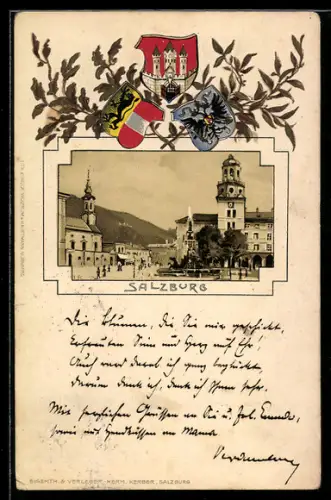 SALZBURG
Die Blumen, die Sie mir geschickt,
Erfreuten Sinn und Herz auf Ehr!
Auch ward darob ich ganz beglückt,
Darum dank ich, dank ich Ihnen sehr.
Mit herzlichen Grüssen an Sie u. Frl.
sowie uns Handküssen an Mama
EIGENTH. & VERLEGER, HERM. KERBER, SALZBURG